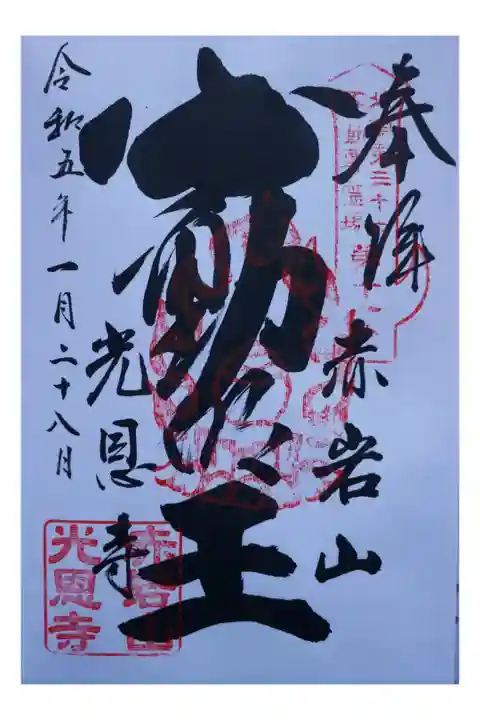 奉拝 赤岩山
不動明王
光恩寺
令和五年一月二十八日
赤岩山
光恩寺